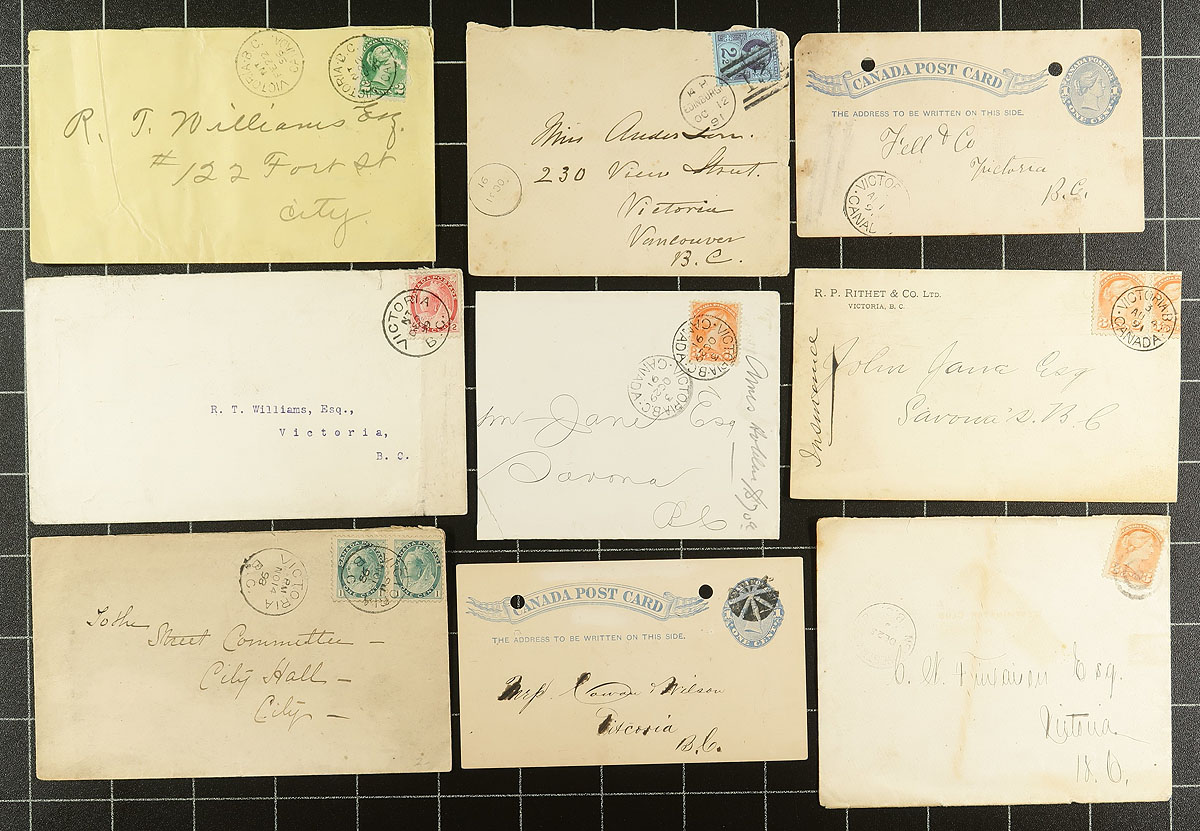 VICTORIA B.C.
R. T. Williams Esq.
#122 Fort St
City.
2½
EDINBURGH
OC 12
91
Miss Anderson.
230 View Street.
Victoria
Vancouver
B.C.
CANADA POST CARD
ONE CENT
THE ADDRESS TO BE WRITTEN ON THIS SIDE.
Fell & Co
Victoria
B.C.
VICTO
CANAD
VICTORIA
B.C.
R. T. Williams, Esq.,
Victoria,
B. C.
VICTORIA B.C.
CANADA
VICTORIA B.C.
CANADA
Jane Esq
Savona
BC
R. P. RITHET & CO. LTD.
VICTORIA, B. C.
VICTORIA B.C.
CANADA
Insurance
John Jane Esq
Savona's. B.C
VICTORIA
PM
NO 14
98
B.C.
CANADA POSTAGE
ONE CENT
To the
Street Committee –
City Hall –
City –
CANADA POST CARD
ONE CENT
THE ADDRESS TO BE WRITTEN ON THIS SIDE.
Cowan & Wilson
Victoria
B.C.
Esq.
Victoria
B.C.